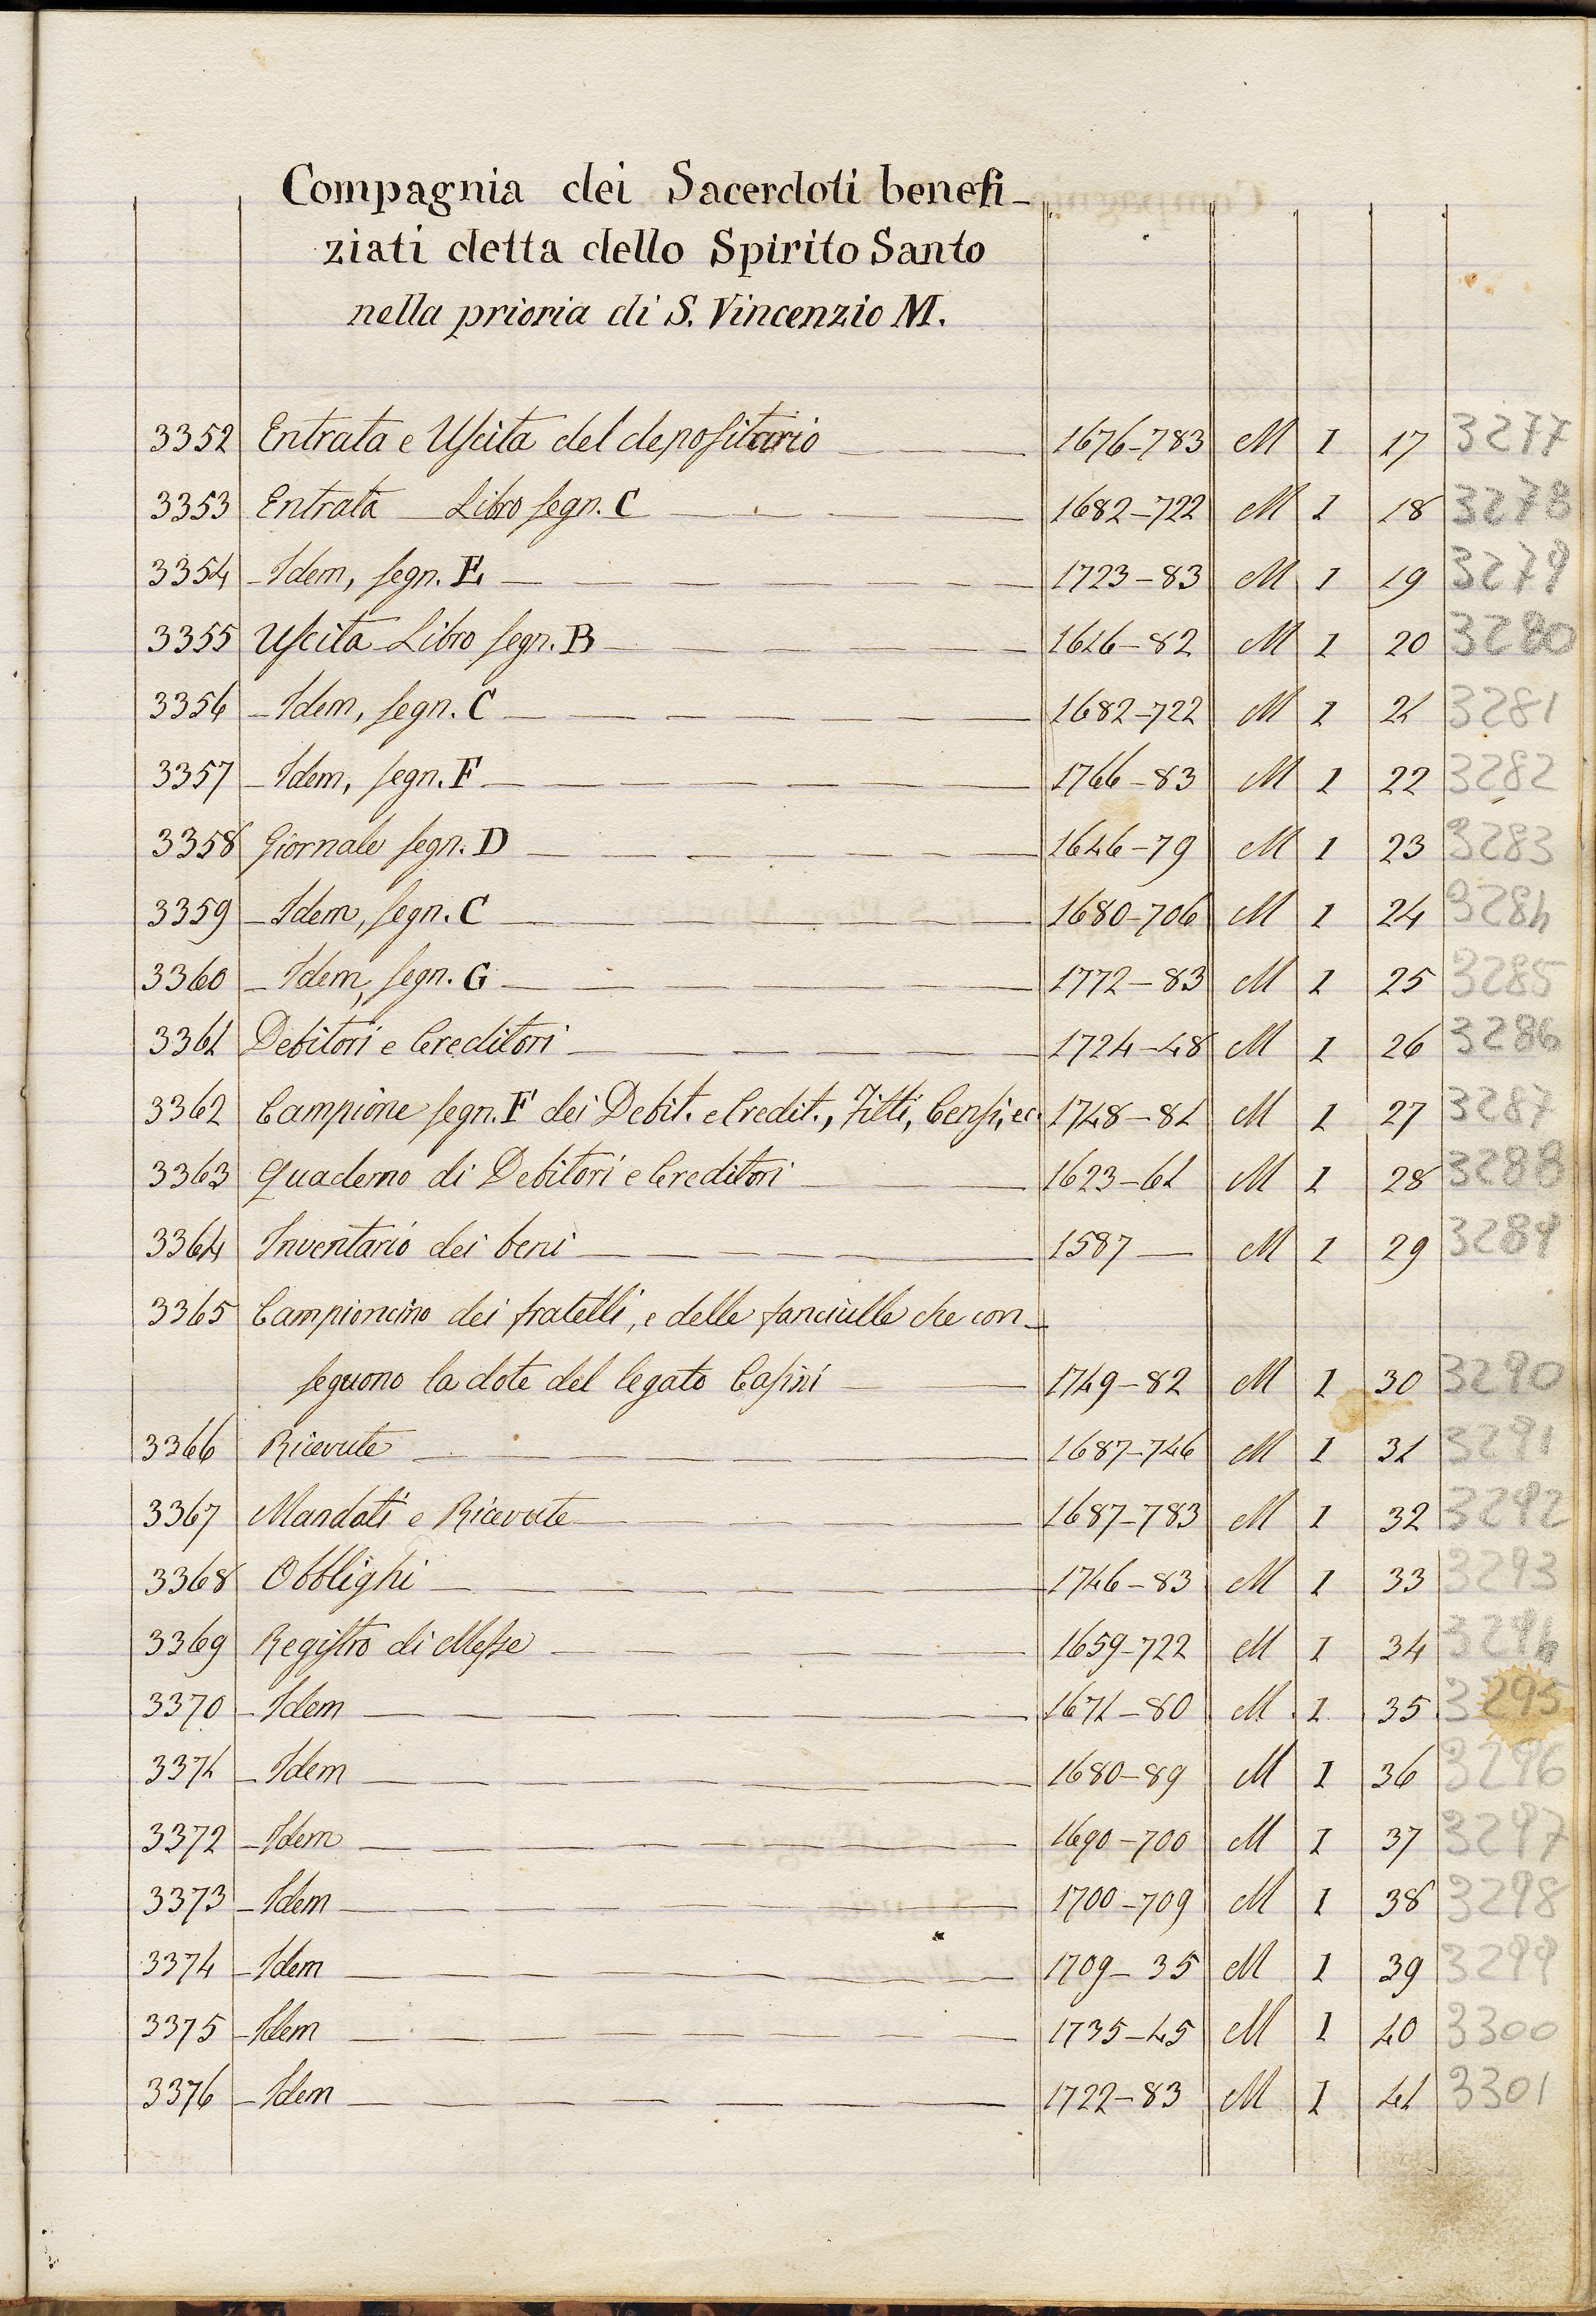 Compagnia dei Sacerdoti benefi-
ziati detta dello Spirito Santo
nella prioria di S. Vincenzio M.
3352 Entrata e Uscita del depositario 1676-783 M I 17 3277
3353 Entrata Libro segn. C 1682-722 M I 18 3278
3354 - Idem, segn. E 1723-83 M I 19 3279
3355 Uscita Libro segn. B 1646-82 M I 20 3280
3356 - Idem, segn. C 1682-722 M I 21 3281
3357 - Idem, segn. F 1766-83 M I 22 3282
3358 Giornale segn. D 1646-79 M I 23 3283
3359 - Idem, segn. C 1680-706 M I 24 3284
3360 - Idem, segn. G 1772-83 M I 25 3285
3361 Debitori e Creditori 1724-48 M I 26 3286
3362 Campione segn. F dei Debit. e Credit., Fitti, Censi, ec. 1748-81 M I 27 3287
3363 Quaderno di Debitori e Creditori 1623-61 M I 28 3288
3364 Inventario dei beni 1587 M I 29 3289
3365 Campioncino dei fratelli, e delle fanciulle che con-
seguono la dote del legato Casini 1749-82 M I 30 3290
3366 Ricevute 1687-746 M I 31 3291
3367 Mandati e Ricevute 1687-783 M I 32 3292
3368 Obblighi 1746-83 M I 33 3293
3369 Registro di Messe 1659-722 M I 34 3294
3370 - Idem 1671-80 M I 35 3295
3371 - Idem 1680-89 M I 36 3296
3372 - Idem 1690-700 M I 37 3297
3373 - Idem 1700-709 M I 38 3298
3374 - Idem 1709-35 M I 39 3299
3375 - Idem 1735-45 M I 40 3300
3376 - Idem 1722-83 M I 41 3301